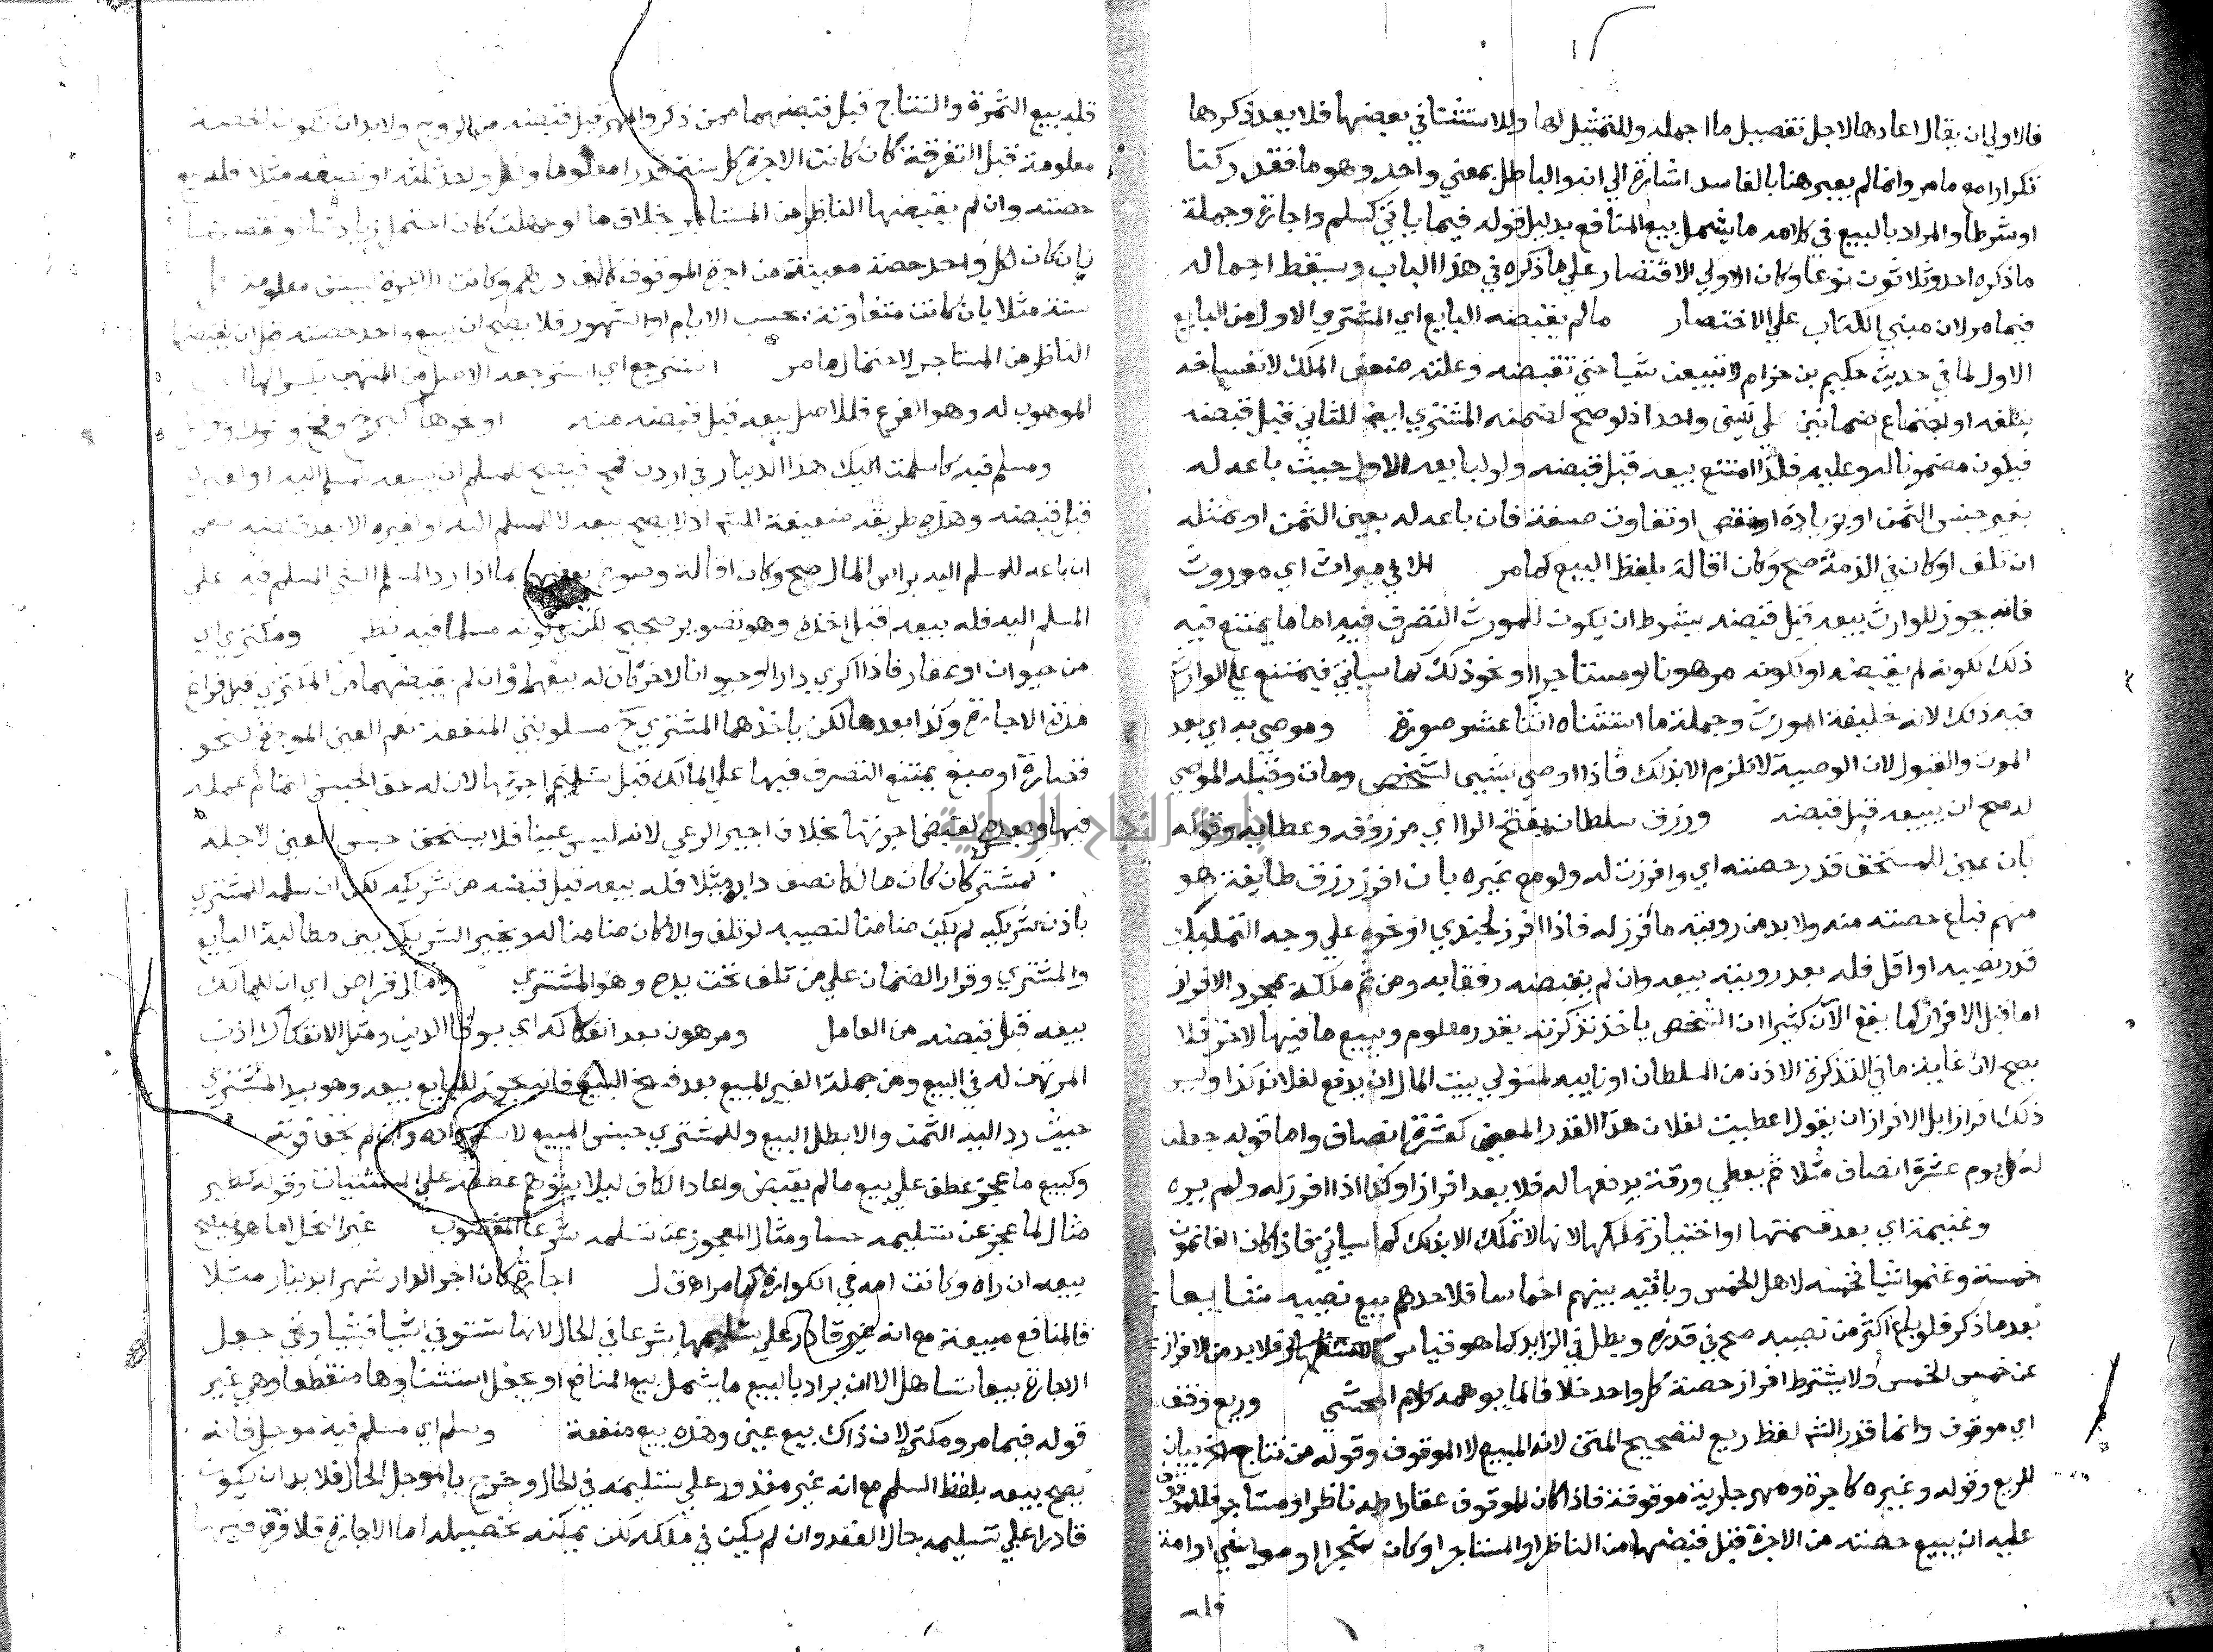 فالاولي ان يقال اعادها لاجل تفصيل ما اجمله وللتمثيل لها وللاستثنا في بعضها فلا يعد ذكرها
تكرارا مع ما مر وانما لم يعبر هنا بالفاسد اشارة الي انه والباطل بمعني واحد وهو ما فقد ركنا
او شرطا والمراد بالبيع في كلامه ما يشمل بيع المنافع بدليل قوله فيما ياتي كسلم واجارة وجملة
ما ذكره احد وثلاثون نوعا وكان الاولي الاقتصار علي ما ذكره في هذا الباب ويسقط اجماله
فيما مر لان مبني الكتاب علي الاختصار ما لم يقبضه البايع اي المشتري الاول من البايع
الاول لما في حديث حكيم بن حزام لا تبيعن شيا حتي تقبضه وعلته ضعف الملك لانفساخه
بتلفه او اجتماع ضمانين علي شيئ واحد اذ لو صح لضمنه المشتري ايضا للثاني قبل قبضه
فيكون مضمونا له وعليه فلذا امتنع بيعه قبل قبضه ولو لبايعه الاول حيث باعه له
بغير جنس الثمن او بزيادة او نقص او تفاوت صفة فان باعه له بعين الثمن او بمثله
ان تلف او كان في الذمة صح وكان اقالة بلفظ البيع كما مر الا في ميراث اي موروث
فانه يجوز للوارث بيعه قبل قبضه بشرط ان يكون للمورث التصرف فيه اما ما يمتنع فيه
ذلك لكونه لم يقبضه او لكونه مرهونا او مستاجرا او نحو ذلك كما سياتي فيمتنع علي الوارث
فيه ذلك لانه خليفة المورث وجملة ما استثناه اثنا عشر صورة وموصي به اي بعد
الموت والقبول لان الوصية لا تلزم الا بذلك فاذا اوصي بشيئ لشخص ومات وقبله الموصي
له صح ان يبيعه قبل قبضه ورزق سلطان بفتح الرا اي مرزوقه وعطايه وقوله
بان عين للمستحق قدر حصته اي وافرزت له ولو مع غيره بان افرز رزق طايفة هو
منهم فباع حصته منه ولا بد من رويته ما فرز له فاذا افرز لجندي او نحوه علي وجه التمليك
قدر نصيبه او اقل فله بعد رويته بيعه وان لم يقبضه رفقا به ومن ثم ملكه بمجرد الافراز
اما قبل الافراز كما يقع الآن كثيرا ان الشخص ياخذ تذكرته بقدر معلوم ويبيع ما فيها لاخر فلا
يصح لان غاية ما في التذكرة الاذن من السلطان او نايبه لمتولي بيت المال ان يدفع لفلان كذا وليس
ذلك افرازا بل الافراز ان يقول اعطيت لفلان هذا القدر المعين كعشرة انصاف واما قوله جعلت
له كل يوم عشرة انصاف مثلا ثم يعطي ورقة يدفعها له فلا يعد افرازا وكذا اذا افرز له ولم يره
وغنيمة اي بعد قسمتها او اختيار تملكها لانها لا تملك الا بذلك كما سياتي فاذا كان الغانمون
خمسة وغنموا شيا فخمسه لاهل الخمس وباقيه بينهم اخماسا فلاحدهم بيع نصيبه مشايعا
بعد ما ذكر فلو باع اكثر من نصيبه صح في قدره وبطل في الزايد كما هو قياس فلا بد من الافراز
عن خمس الخمس ولا يشترط افراز حصة كل واحد خلافا لما يوهمه كلام المحشي وريع وقف
اي موقوف وانما قدر الشم لفظ ريع لتصحيح المتن لانه المبيع لا الموقوف وقوله من نتاج بيان
للريع وقوله وغيره كاجرة ومهر جارية موقوفة فاذا كان الموقوف عقارا وله ناظر او مستاجر فللموقوف
عليه ان يبيع حصته من الاجرة قبل قبضها من الناظر او المستاجر او كان شجرا او مواشي او امة
فله
فله بيع الثمرة والنتاج قبل قبضهما ممن ذكر والمهر قبل قبضه من الزوج ولا بد ان تكون الحصة
معلومة قبل التفرقة كان كانت الاجرة كل سنة قدرا معلوما ولكل واحد ثلثه او نصفه مثلا فله بيع
حصته وان لم يقبضها الناظر من المستاجر بخلاف ما لو جهلت كان احتمل زيادتها ونقصها
بان كان لكل واحد حصة معينة من اجرة الموقوف كالف درهم وكانت الاجرة ليست معلومة كل
سنة مثلا بان كانت متفاوتة بحسب الايام او الشهور فلا يصح ان يبيع واحد حصته قبل ان يقبضها
الناظر من المستاجر لاحتمال ما مر استرجع اي استرجعه الاصل من المتهب بكسر الها
الموهوب له وهو الفرع فللاصل بيعه قبل قبضه منه او نحوها كبرج
ومسلم فيه كاسلمت اليك هذا الدينار في اردب قمح فيصح للمسلم ان يبيعه للمسلم اليه او لغيره
قبل قبضه وهذه طريقة ضعيفة المعتمد اذ لا يصح بيعه لا للمسلم اليه او لغيره الا بعد قبضه نعم
ان باعه للمسلم اليه براس المال صح وكان اقالة وصوره بعضهم بما اذا رد المسلم الشي المسلم فيه علي
المسلم اليه فله بيعه قبل اخذه وهو تصوير صحيح لكن في كونه مسلما فيه نظر ومكتري اي
من حيوان او عقار فاذا اكري دارا او حيوانا لاخر كان له بيعهما وان لم يقبضهما من المكتري قبل فراغ
مدة الاجارة وكذا بعدها لكن ياخذهما المشتري ح مسلوبتي المنفعة نعم العين الموجرة لنحو
قصارة او صبغ يمتنع التصرف فيها علي المالك قبل تسليم اجرتها لان له حق الحبس لتمام عمله
فيها وبعده لقبض اجرتها بخلاف اجير الرعي لانه ليس عينا فلا يستحق حبس العين لاجله
كمشترك كان كان مالكا نصف دابة مثلا فله بيعه قبل قبضه من شريكه لكن ان سلمه للمشتري
باذن شريكه لم يكن ضامنا لنصيبه لو تلف والا كان ضامنا له ويخير الشريك بين مطالبة البايع
والمشتري وقرار الضمان علي من تلف تحت يده وهو المشتري ومال قراض اي ان للمالك
بيعه قبل قبضه من العامل ومرهون بعد انفكاكه اي بوفا الدين ومثل الانفكاك اذن
المرتهن له في البيع ومن جملة الغير المبيع بعد فسخ البيع فانه يجوز للبايع بيعه وهو بيد المشتري
حيث رد اليه الثمن والا بطل البيع وللمشتري حبس المبيع لاسترداده وان لم يخف فوته
وكبيع ما عجز عطف علي بيع ما لم يقبض واعاد الكاف ليلا يتوهم عطفه علي المستثنيات وقوله كطير
مثال لما عجز عن تسليمه حسا ومثال المعجوز عن تسلمه شرعا المغصوب غير النحل اما هو فيصح
بيعه ان راه وكانت امه في الكوارة كما مر اجارة كان اجر الدار شهرا بدينار مثلا
فالمنافع مبيعة مع انه غير قادر علي تسليمها شرعا في الحال لانها تستوفي شيا فشيا وفي جعل
الاجارة بيعا تساهل الا ان يراد بالبيع ما يشمل بيع المنافع او يجعل استثناوها منقطعا وهي غير
قوله فيما مر ومكتري لان ذاك بيع عين وهذه بيع منفعة وسلم اي مسلم فيه موجل فانه
يصح بيعه بلفظ السلم مع انه غير مقدور علي تسليمه في الحال وخرج بالموجل الحال فلا بد ان يكون
قادرا علي تسليمه حال العقد وان لم يكن في ملكه لكن يمكنه تحصيله اما الاجارة فلا فرق فيها